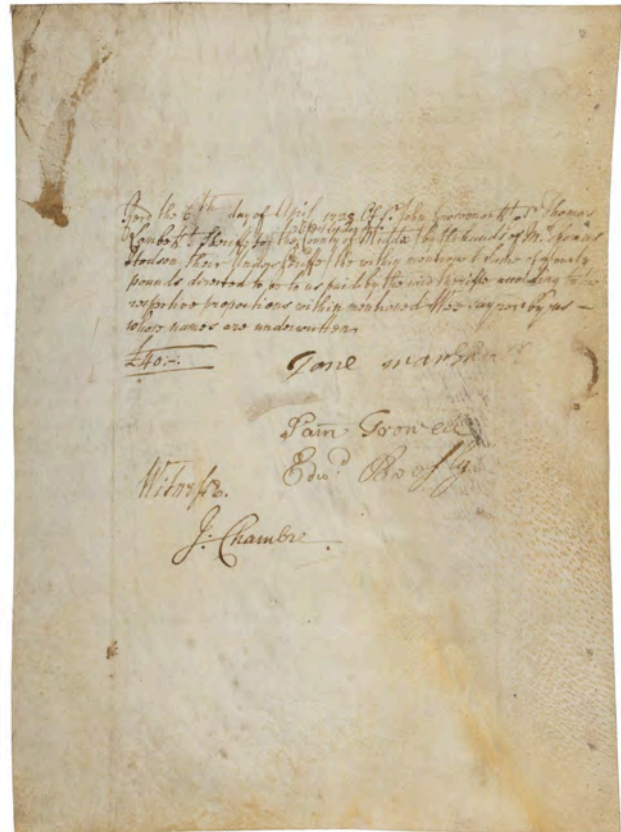 Recd the 6th day of April 1728 Of Sr. John Grosvenor Kt & Sr Thomas
Lombe Kt Sheriffs for the County of Middx by the hands of Mr.
Hodson their Undersheriffe the within mentioned Sume of
pounds directed to be to us paid by the said sheriffe according to the
respective proportions within mentioned Wee say recd by us –
whose names are underwritten
£40:-:-
Jane Marsha
Sam Growed
Edwd
Witnesse.
J: Chambre